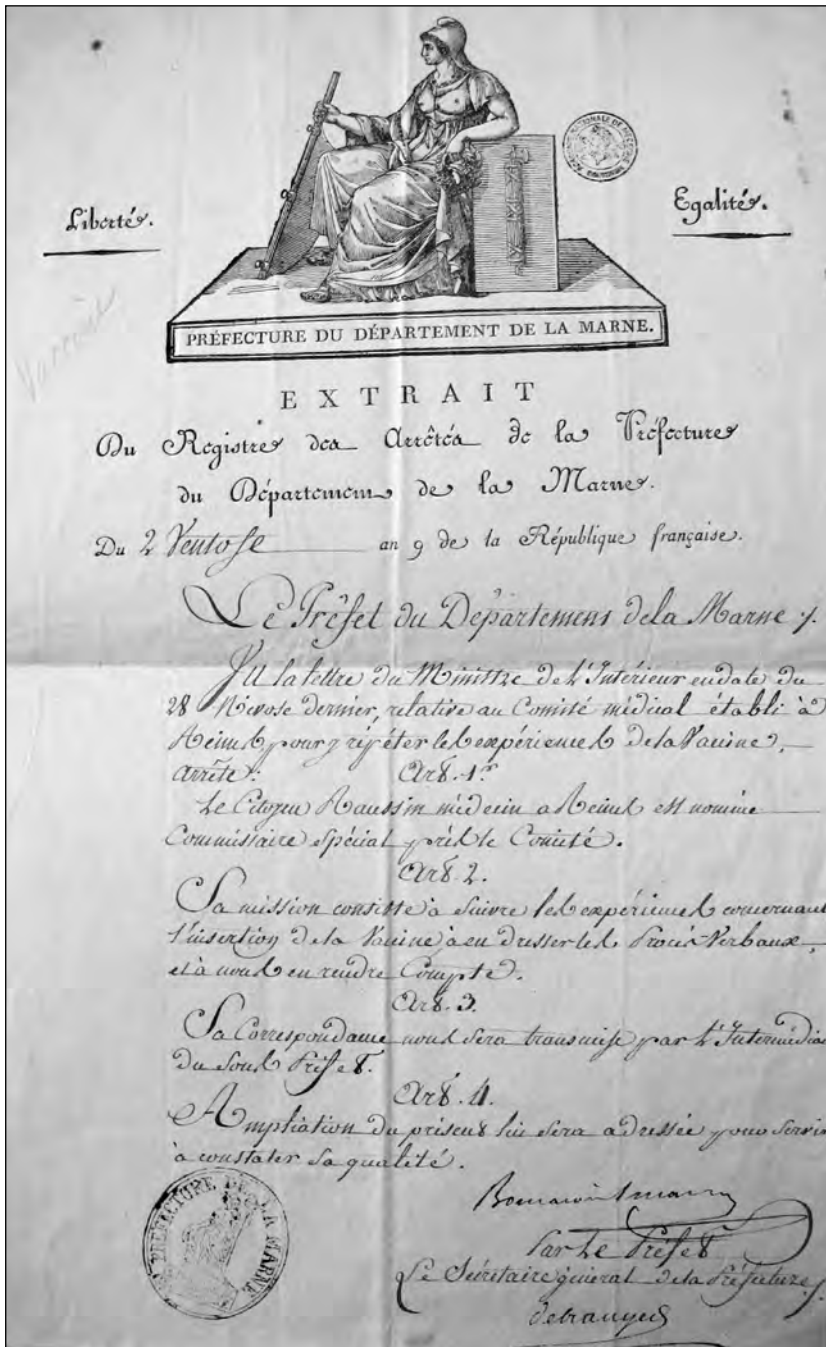 Liberté.
Egalité.
Vaccine
PRÉFECTURE DU DÉPARTEMENT DE LA MARNE.
EXTRAIT
Du Registre des Arrêtés de la Préfecture
du Département de la Marne.
Du 2 Ventose an 9 de la République française.
Le Préfet du Département de la Marne
Vu la lettre du Ministre de l'Intérieur en date du
28 Nivose dernier, relative au Comité médical établi à
Reims pour y répéter les expériences de la Vaccine,
arrête: Art. 1er
Le Citoyen Raussin médecin a Reims est nommé
Commissaire spécial près le Comité.
Art. 2.
Sa mission consiste à suivre les expériences concernant
l'insertion de la Vaccine à en dresser les Procès-Verbaux,
et à nous en rendre Compte.
Art. 3.
Sa Correspondance nous sera transmise par l'Intermédiai
du Sous Préfet.
Art. 4.
Ampliation du présent lui sera adressée pour servir
à constater sa qualité.
PREFECTURE DE LA MARNE
Par Le Préfet
Le Sécrétaire général de la Préfecture